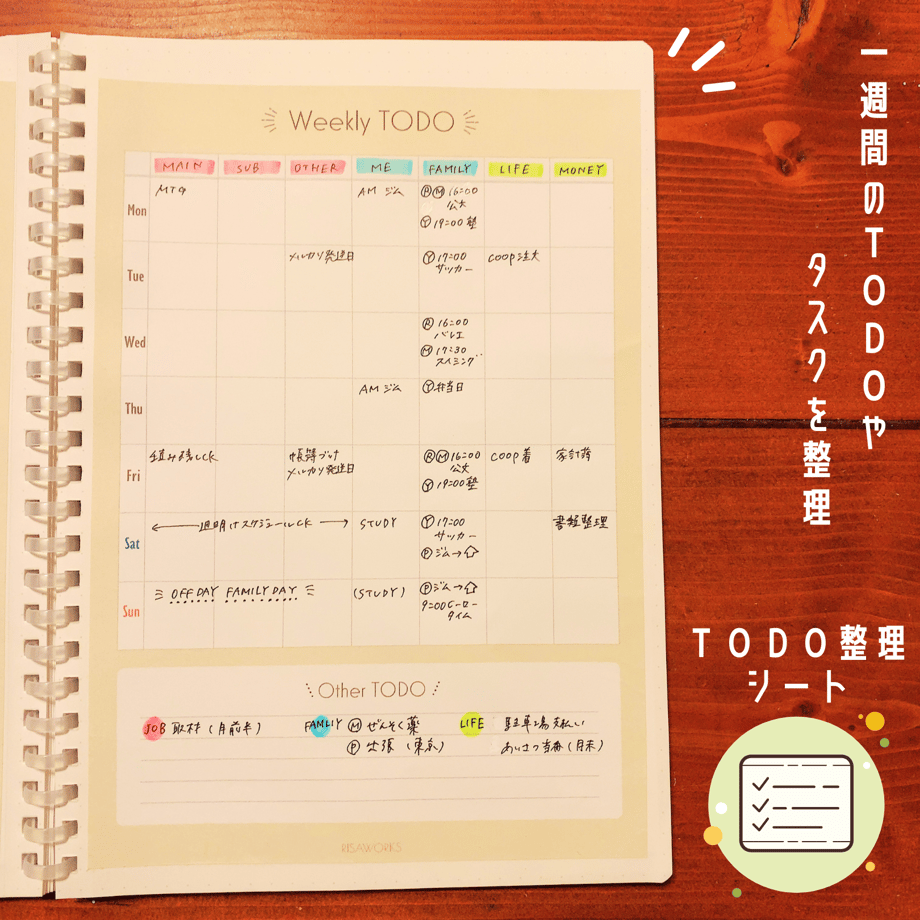 Weekly TODO
MAIN SUB OTHER ME FAMILY LIFE MONEY
Mon
MTG
AM ジム
Ⓡ Ⓜ 16:00
公文
Ⓨ 19:00 塾
Tue
メルカリ発送日
Ⓨ 17:00
サッカー
coop 注文
Wed
Ⓡ 16:00
バレエ
Ⓜ 17:30
スイミング
Thu
AM ジム
Ⓨ 弁当日
Fri
組み残しCK
帳簿づけ
メルカリ発送日
Ⓡ Ⓜ 16:00
公文
Ⓨ 19:00 塾
coop 着
家計簿
Sat
週明けスケジュールCK
STUDY
Ⓨ 17:00
サッカー
Ⓟ ジム→
書類整理
Sun
OFF DAY FAMILY DAY
(STUDY)
Ⓟ ジム→
9:00 ヒーロー
タイム
Other TODO
JOB 取材 (月前半)
FAMLIY Ⓜ ぜんそく薬
Ⓟ 出張 (東京)
LIFE 駐車場支払い
あいさつ当番 (月末)
RISAWORKS
一週間のTODOや
タスクを整理
TODO整理
シート